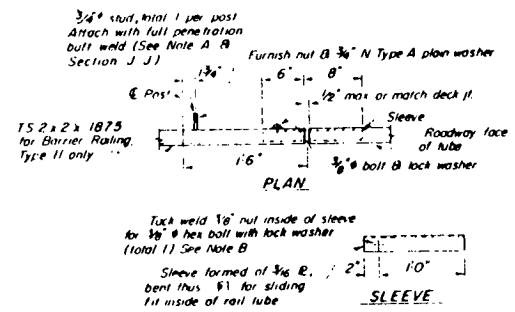 3/4"ϕ stud, total 1 per post
Attach with full penetration
butt weld (See Note A &
Section J J)
Furnish nut & 3/4" N Type A plain washer
1 3/4"
6" 8"
℄ Post
1/2" max or match deck jt.
Sleeve
TS 2 x 2 x 1875
for Barrier Railing,
Type II only
Roadway face
of tube
1'6"
3/8"ϕ bolt & lock washer
PLAN
Tack weld 3/8" nut inside of sleeve
for 3/8"ϕ hex bolt with lock washer
(total 1) See Note B
Sleeve formed of 3/16 ℄,
bent thus for sliding
fit inside of rail tube
2" 1'0"
SLEEVE